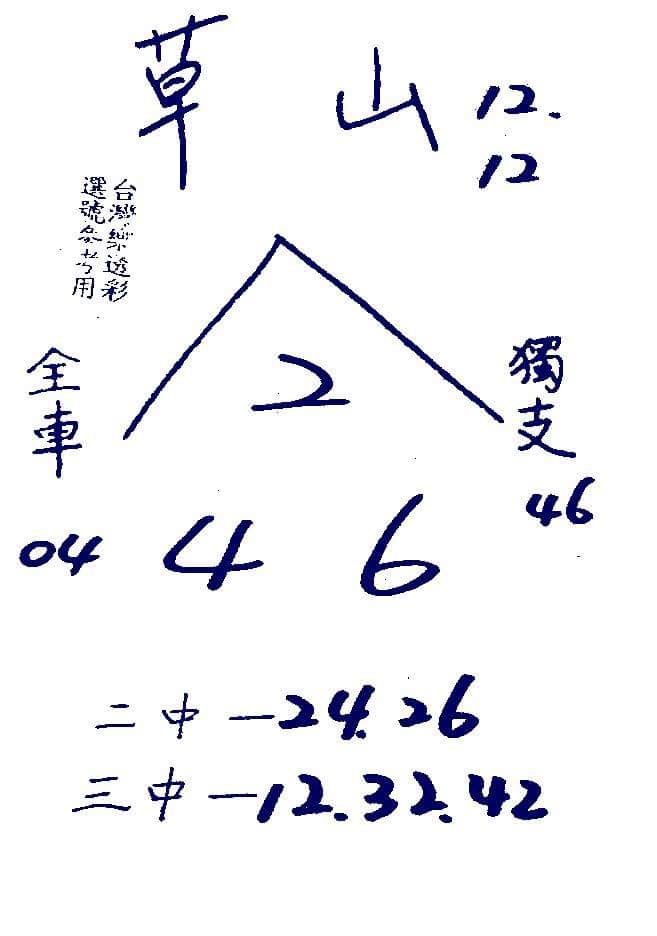 草山 12.
12
台灣樂透彩
選號參考用
2
全車
獨支
46
04
4 6
二中—24.26
三中—12.32.42